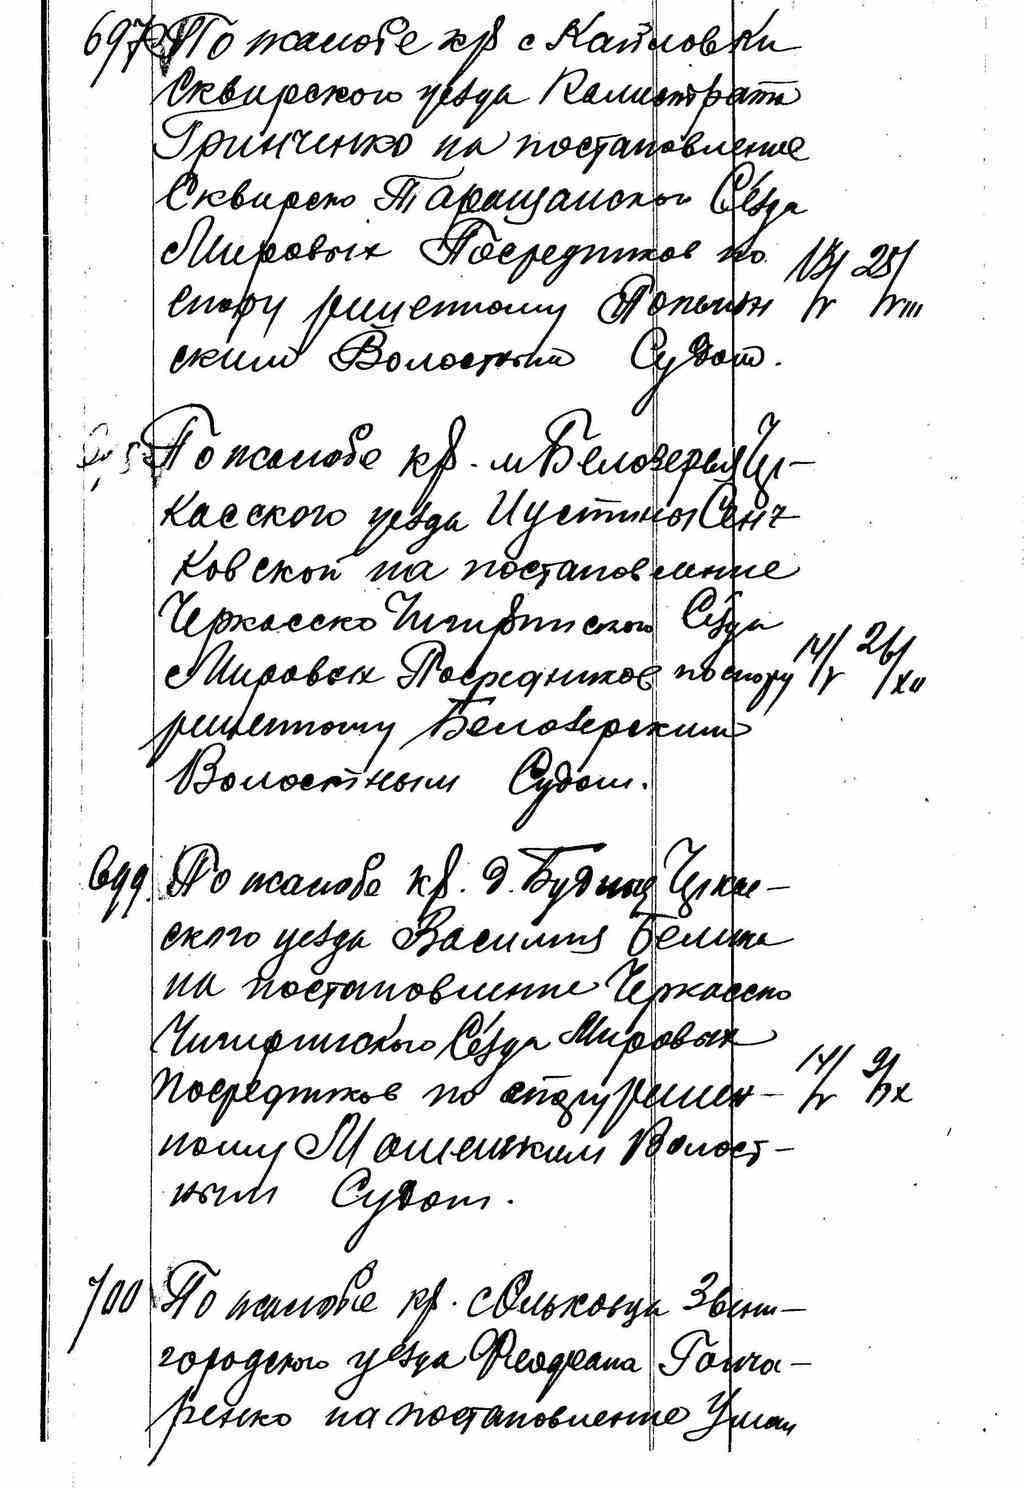 697 По жалобе кр с Капловки
Сквирского уезда Калистрата
Гринченко на постановление
Сквирско Таращанского Сезда
Мировых Посредников по
спору решенному 13/V 25/VIII
ским Волостным Судом.
По жалобе кр. м Белозерья Чер-
касского уезда Иустины Сенч
ковской на постановление
Черкасско Чигиринского Сезда
Мировых Посредников по спору 14/V 26/XII
решенному Белозерским
Волостным Судом.
699. По жалобе кр. д. Будища Черкас-
ского уезда Василия Белика
на постановление Черкасско
Чигиринского Сезда Мировых
Посредников по спору решен- 14/V 9/IX
ному Мошенским Волост-
ным Судом.
700 По жалобе кр. с Ольховца Звени-
городского уезда Гонча-
ренко на постановление Уман